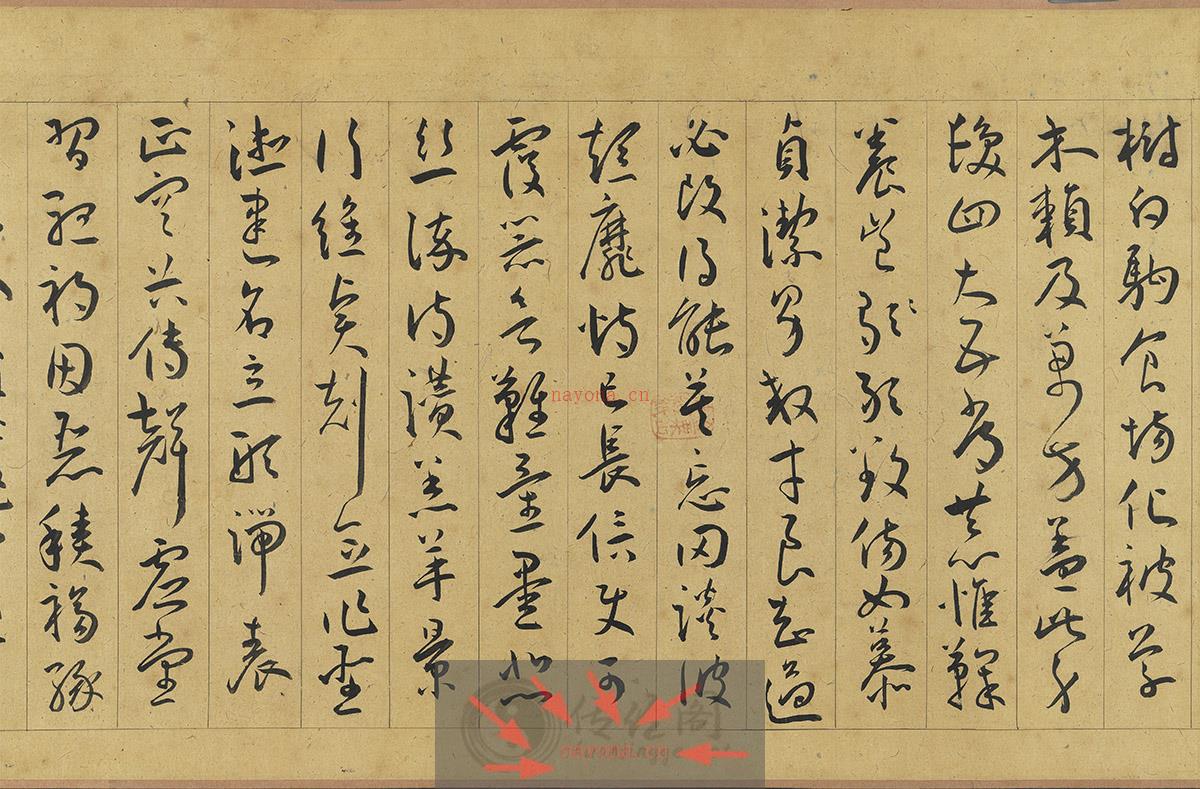 樹白駒食場化被草
木賴及萬方蓋此身
髮四大五常恭惟鞠
養豈敢毀傷女慕
貞潔男效才良知過
必改得能莫忘罔談彼
短靡恃己長信使可
覆器欲難量墨悲
絲染詩讚羔羊景
行維賢剋念作聖
德建名立形端表
正空谷傳聲虛堂
習聽禍因惡積福緣
nayona.cn
传经阁